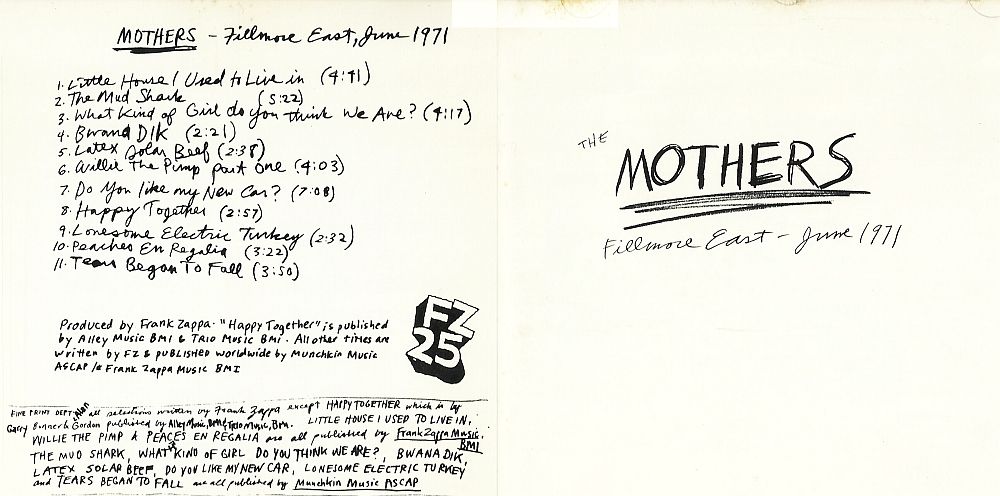 MOTHERS - Fillmore East, June 1971
1. Little House I Used to Live in (4:41)
2. The Mud Shark (5:22)
3. What Kind of Girl do you think We Are? (4:17)
4. Bwana DIK (2:21)
5. Latex Solar Beef (2:38)
6. Willie The Pimp part one (4:03)
7. Do You like my New Car? (7:08)
8. Happy Together (2:57)
9. Lonesome Electric Turkey (2:32)
10. Peaches En Regalia (3:22)
11. Tears Began To Fall (3:50)
Produced by Frank Zappa. "Happy Together" is published
by Alley Music BMI & TRIO MUSIC BMI. All other tunes are
written by FZ & published worldwide by Munchkin Music
ASCAP / Frank Zappa Music BMI
FZ
25
FINE PRINT DEPT: all selections written by Frank Zappa except HAPPY TOGETHER which is by
Garry Bonner & Alan Gordon published by Alley Music, BMI & Trio Music, BMI. LITTLE HOUSE I USED TO LIVE IN,
WILLIE THE PIMP & PEACES EN REGALIA are all published by Frank Zappa Music, BMI
THE MUD SHARK, WHAT KIND OF GIRL DO YOU THINK WE ARE?, BWANA DIK,
LATEX SOLAR BEEF, DO YOU LIKE MY NEW CAR, LONESOME ELECTRIC TURKEY
and TEARS BEGAN TO FALL are all published by Munchkin Music ASCAP
THE
MOTHERS
Fillmore East - June 1971